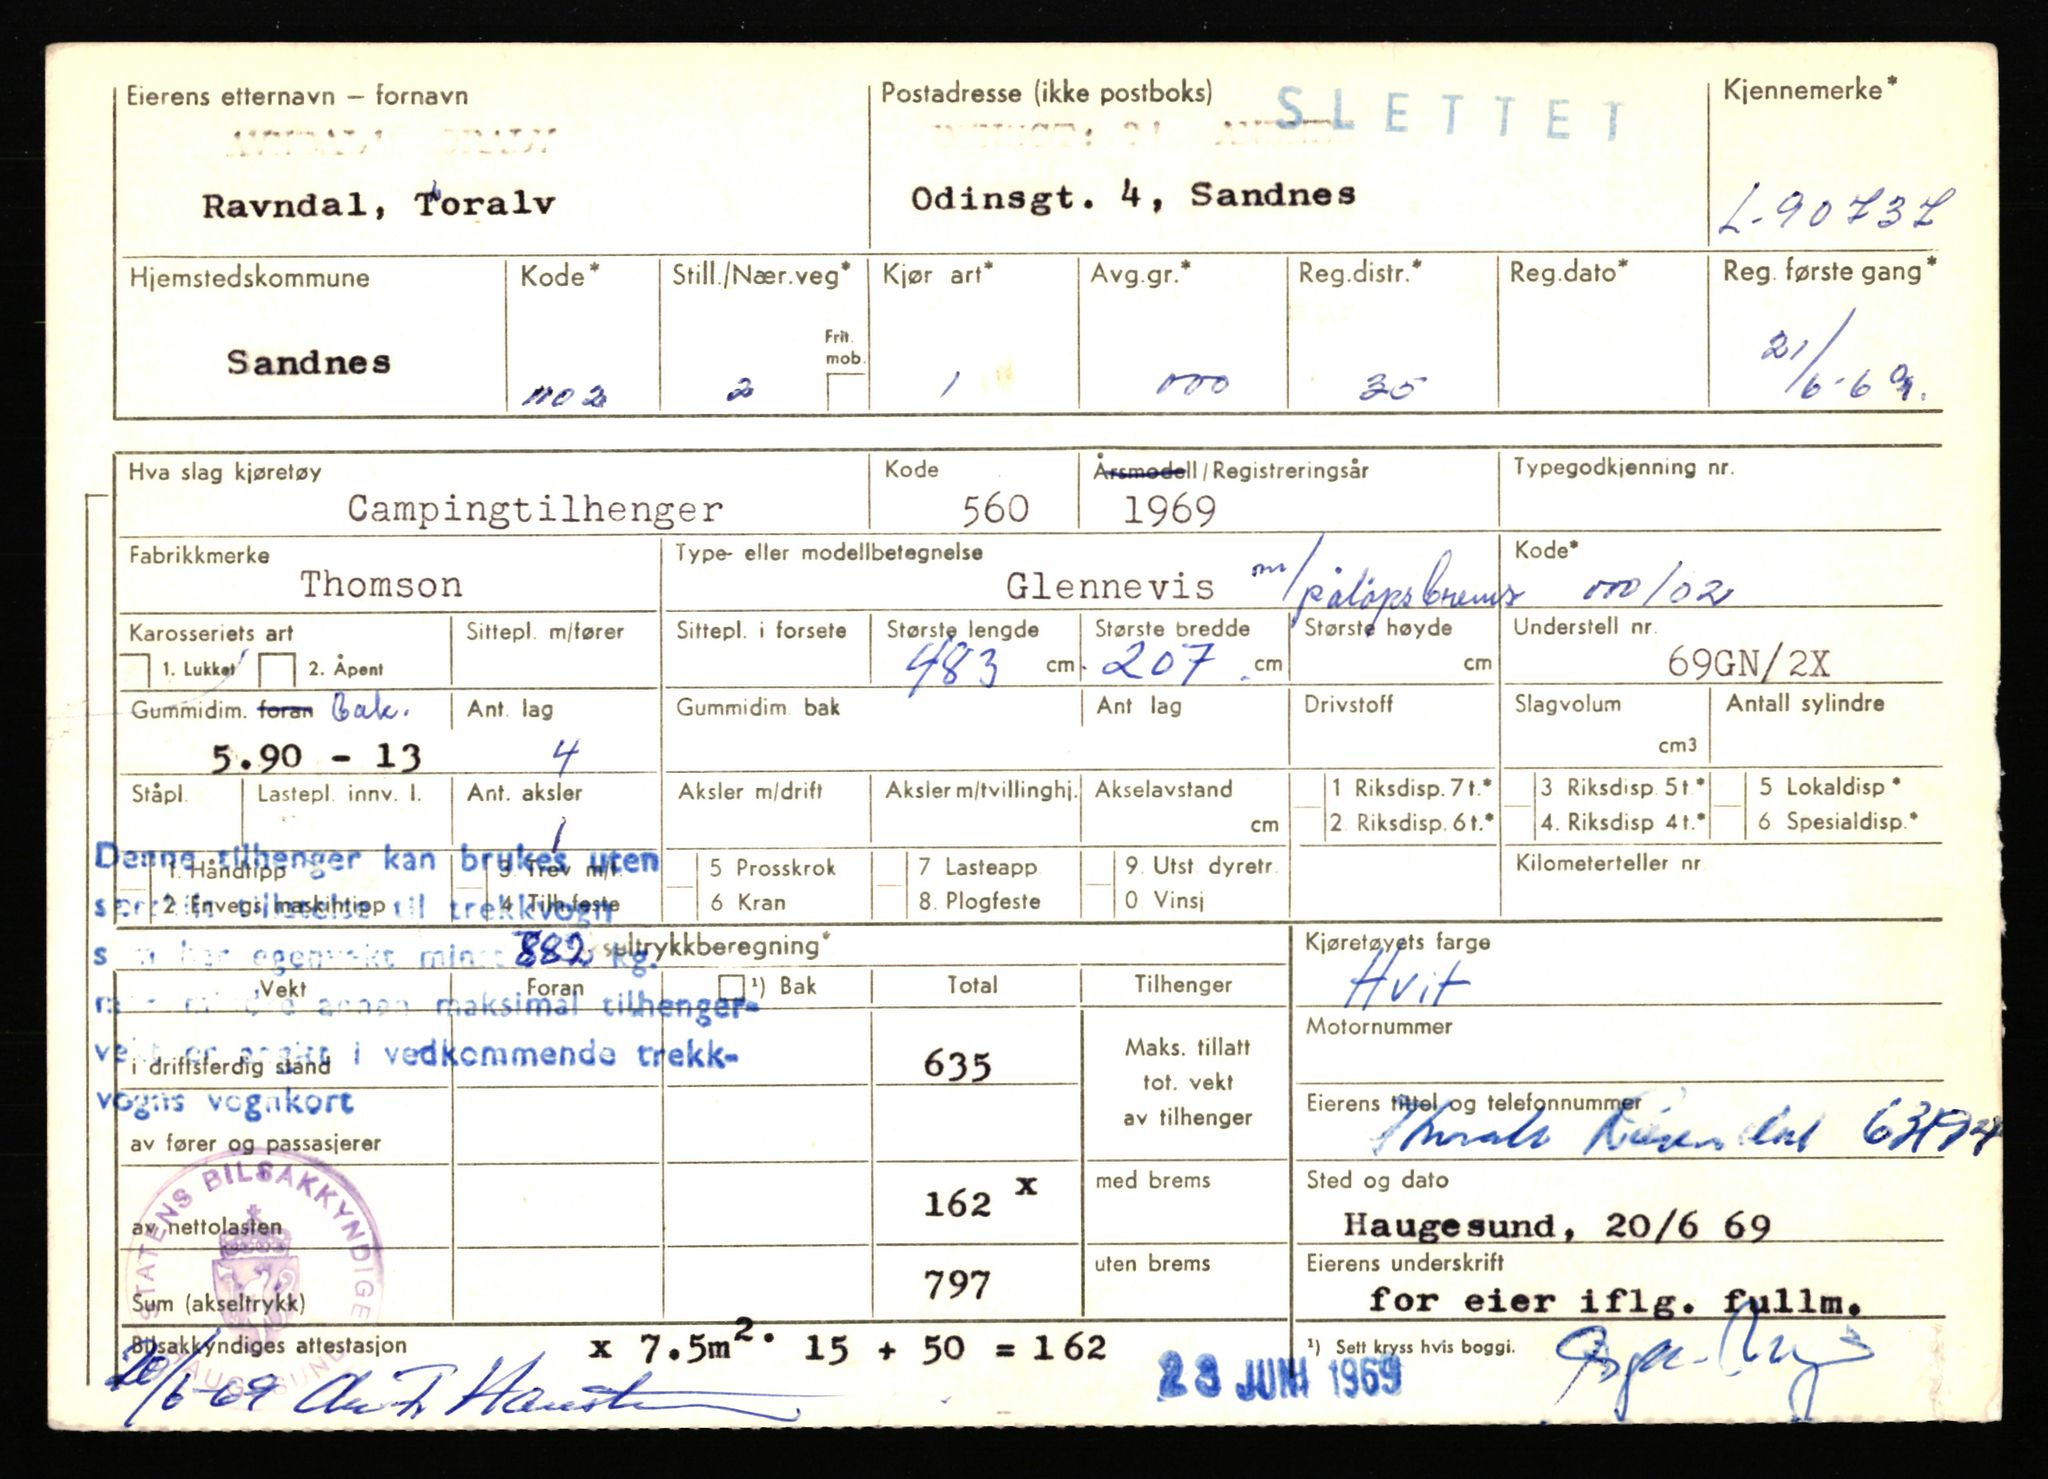 Eierens etternavn – fornavn
Postadresse (ikke postboks)
SLETTET
Kjennemerke*
Ravndal, Thoralv
Odinsgt. 4, Sandnes
L-90737
Hjemstedskommune
Kode*
Still./Nær.veg*
Kjør art*
Avg.gr.*
Reg.distr.*
Reg.dato*
Reg. første gang*
Frit. mob.
Sandnes
1102
2
1
000
35
21/6-69.
Hva slag kjøretøy
Kode
Årsmodell / Registreringsår
Typegodkjenning nr.
Campingtilhenger
560
1969
Fabrikkmerke
Type- eller modellbetegnelse
Kode*
Thomson
Glennevis m/påløpsbrems
000/02
Karosseriets art
Sittepl. m/fører
Sittepl. i forsete
Største lengde
Største bredde
Største høyde
Understell nr.
1. Lukket
2. Åpent
483 cm.
207 cm
cm
69GN/2X
Gummidim. foran bak.
Ant. lag
Gummidim. bak
Ant lag
Drivstoff
Slagvolum
Antall sylindre
5.90 - 13
4
cm3
Ståpl.
Lastepl. innv. l.
Ant. aksler
Aksler m/drift
Aksler m/tvillinghj.
Akselavstand
1 Riksdisp. 7 t.*
3 Riksdisp. 5 t.*
5 Lokaldisp*
1
cm
2. Riksdisp. 6 t.*
4. Riksdisp 4 t.*
6 Spesialdisp.*
Denne tilhenger kan brukes uten
1. Håndtipp
3 Trev m/t.
5 Prosskrok
7 Lasteapp.
9. Utst dyretr.
Kilometerteller nr
2 Envegs maskintipp
4 Tilh.feste
6 Kran
8. Plogfeste
0 Vinsj
til trekkvogn
egenvekt minst 882 kg.
aksltrykkberegning*
Kjøretøyets farge
Hvit
Vekt
Foran
¹) Bak
Total
Tilhenger
annen maksimal tilhenger-
vekt er angitt i vedkommende trekk-
vogns vognkort
Motornummer
i driftsferdig stand
635
Maks. tillatt
tot. vekt
av tilhenger
Eierens tittel og telefonnummer
Thoralv Ravndal
av fører og passasjerer
av nettolasten
162 x
med brems
Sted og dato
Haugesund, 20/6 69
Sum (akseltrykk)
797
uten brems
Eierens underskrift
for eier iflg. fullm.
STATENS BILSAKKYNDIGE HAUGESUND
Bilsakkyndiges attestasjon
x 7.5m2. 15 + 50 = 162
¹) Sett kryss hvis boggi.
20/6-69
23 JUNI 1969